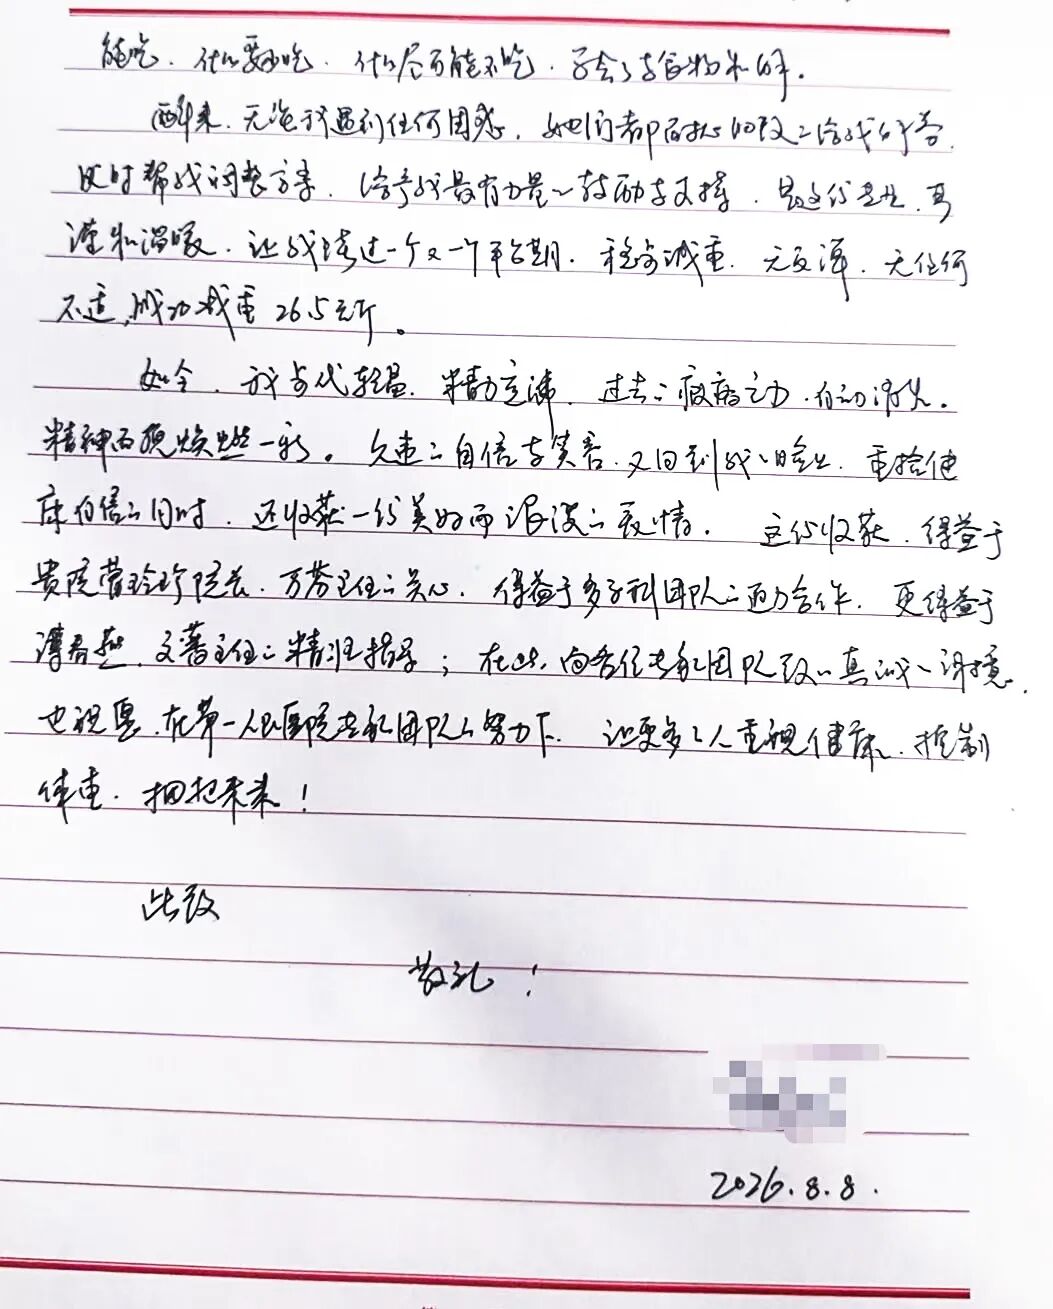 能吃、什么要少吃、什么尽可能不吃，学会了与食物和解。
醒来，无论我遇到任何困惑，她们都耐心的
及时帮我调整方案，给予我最有力量的鼓励与支撑，是这份专业、严
谨和温暖，让我度过一个又一个平台期，稳步减重，无反弹，无任何
不适，成功减重26.5公斤。
如今，我步伐轻盈，精力充沛，过去的疲病乏力，自动消失。
精神面貌焕然一新。久违的自信与笑容，又回到我的脸上，重拾健
康自信的同时，还收获一份美好而深谈的友情。这份收获，得益于
贵院曹玲珍院长、万芬主任的关心，得益于多学科团队的通力合作，更得益于
谭春艳、文蕾主任的精准指导；在此，向各位专家团队致以真诚的谢意，
也祝愿，在第一人民医院专家团队的努力下，让更多的人重视健康、控制
体重，拥抱未来！
此致
敬礼！
2026.8.8.